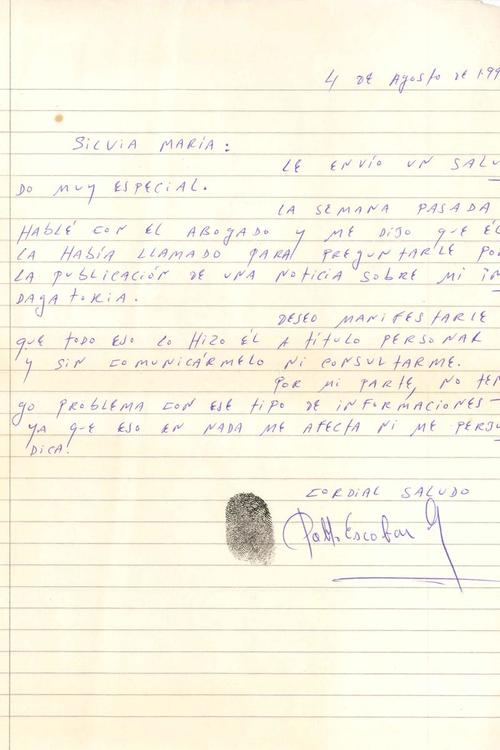 4 DE Agosto DE 199
SILVIA MARÍA:
LE ENVÍO UN SALU
DO MUY ESPECIAL.
LA SEMANA PASADA
HABLÉ CON EL ABOGADO Y ME DIJO QUE ÉL
LA HABÍA LLAMADO PARA PREGUNTARLE POR
LA PUBLICACIÓN DE UNA NOTICIA SOBRE MI IN
DAGATORIA.
DESEO MANIFESTARLE
QUE TODO ESO LO HIZO ÉL A TÍTULO PERSONAL
Y SIN COMUNICÁRMELO NI CONSULTARME.
POR MI PARTE, NO TEN
GO PROBLEMA CON ESE TIPO DE INFORMACIONES
YA QUE ESO EN NADA ME AFECTA NI ME PERJU
DICA.
CORDIAL SALUDO
Pablo Escobar G